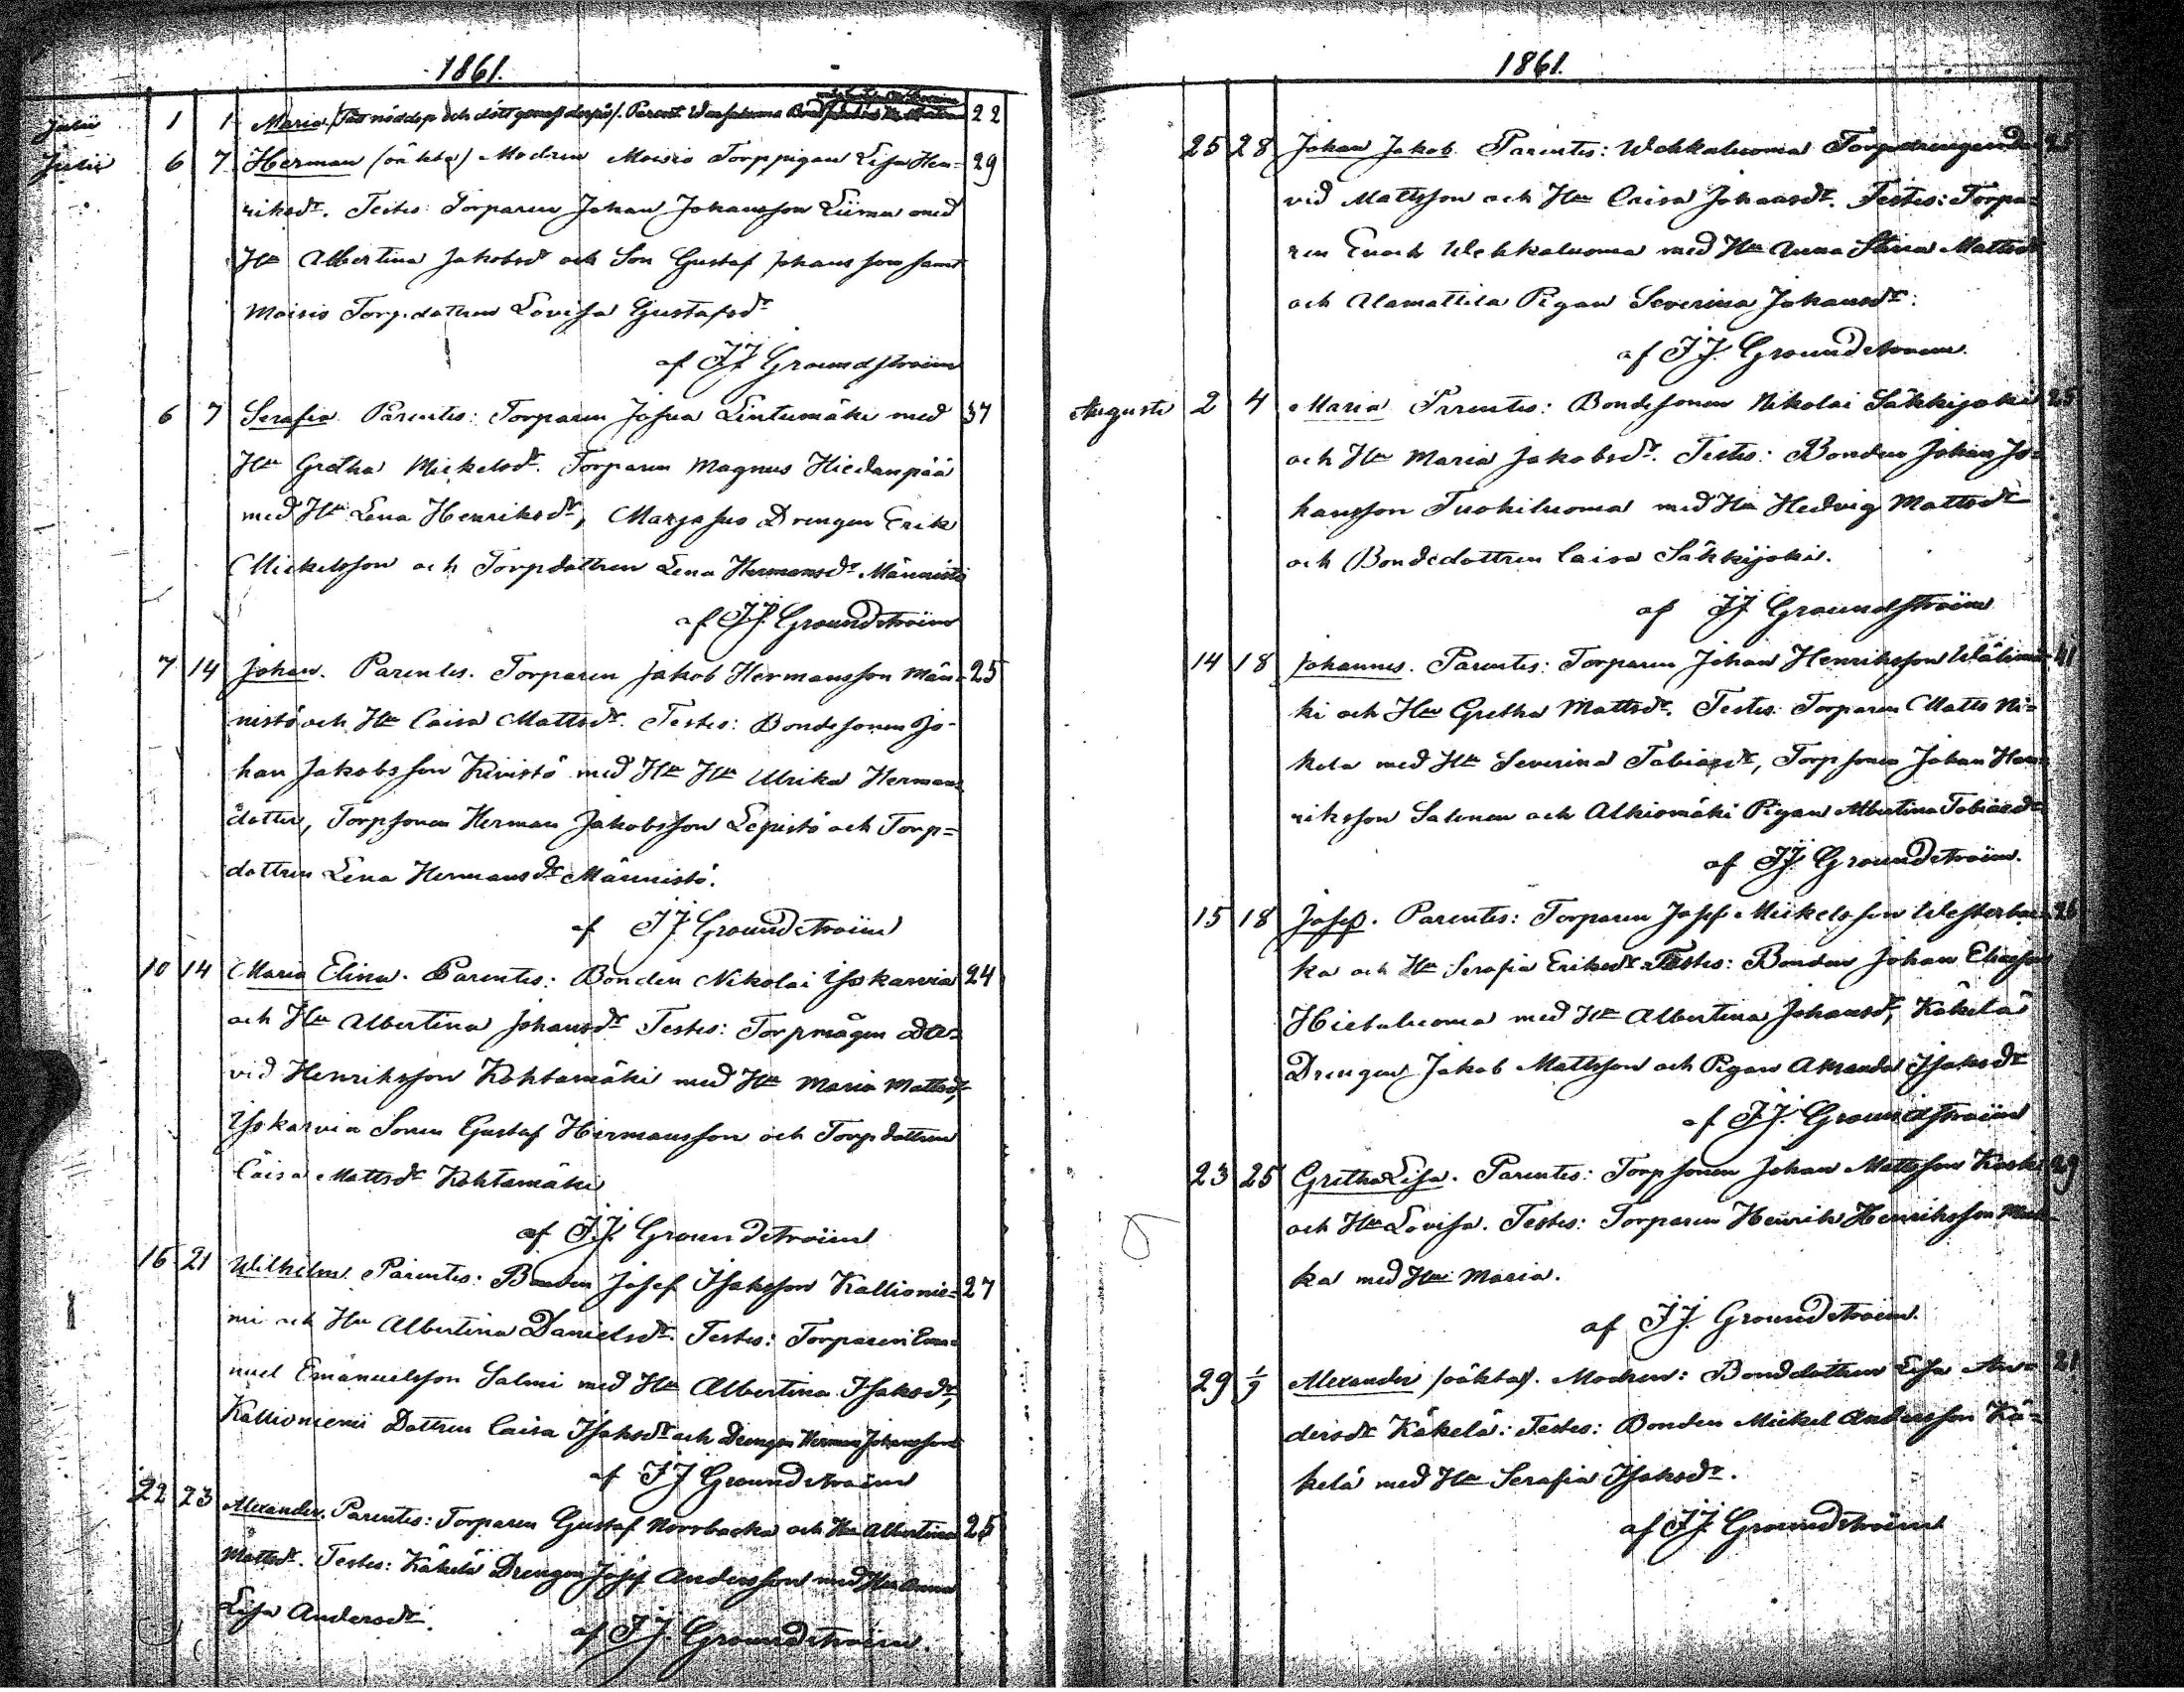 1861.
Julii 1 1 Maria (fått nöddop och dött genast derpå). Parent. Wehkaluoma 22
Julii 6 7 Herman (oäkta) Modren Moisio Torppigan Lisa Hen- 29
riksdr. Testes: Torparen Johan Johansson Liima med
Hu Albertina Jakobsdr och Son Gustaf Johansson samt
Moisio Torpdottren Lovisa Gustafsdr
af J J Groundstroëm
6 7 Serafia Parentes: Torparen Josua Lintumäki med 37
Hu Gretha Mickelsdr. Torparen Magnus Hiedanpää
med Hu Lena Henriksdr, Marjasuo Drengen Erik
Mickelsson och Torpdottren Lena Hermansdr Männistö
af J J. Groundstroëm
7 14 Johan. Parentes. Torparen Jakob Hermansson Män- 25
nistö och Hu Caisa Mattsdr. Testes: Bondesonen Jo-
han Jakobsson Kivistö med Hu Hu Ulrika Hermans
dotter, Torpsonen Herman Jakobsson Lepistö och Torp=
dottren Lena Hermansdr Männistö.
af J J. Groundstroëm
10 14 Maria Elina. Parentes: Bonden Nikolai Isokarvia 24
och Hu Albertina Johansdr Testes: Torpmågen Da-
vid Henriksson Kohtamäki med Hu Maria Mattsdr,
Isokarvia Sonen Gustaf Hermansson och Torpdottren
Caisa Mattsdr Kohtamäki
af J.J. Groundstroëm
16 21 Wilhelm Parentes: Bonden Josef Isaksson Kallionie= 27
mi och Hu Albertina Danielsdr. Testes: Torparen Ema-
nuel Emanuelsson Salmi med Hu Albertina Isaksdr,
Kallioniemi Dottren Caisa Isaksdr och Drengen Herman Johansson
af J J Groundstroëm
22 23 Alexander. Parentes: Torparen Gustaf Norrbacka och Hu Albertina 25
Mattsdr. Testes: Käkelä Drengen Josef Andersson med Hu Anna
Lisa Andersdr.
af J J. Groundstroëm.
1861.
25 28 Johan Jakob. Parentes: Wehkaluoma Torpdrengen Da- 25
vid Mattsson och Hu Caisa Johansdr. Testes: Torpa=
ren Enoch Wehkaluoma med Hu Anna Stina Mattsdr
och Alamattila Pigan Severina Johansdr.
af J J. Groundstroëm.
Augusti 2 4 Maria Prrentes: Bondesonen Nikolai Säkkijoki 25
och Hu Maria Jakobsdr. Testes: Bonden Johan Jo=
hansson Tuohiluoma med Hu Hedvig Mattsdr
och Bondedottren Caisa Säkkijoki.
af J J. Groundstroëm
14 18 Johannes. Parentes: Torparen Johan Henriksson Wälimä- 41
ki och Hu Gretha Mattsdr. Testes: Torparen Matts Ni=
kela med Hu Severina Tobiasdr, Torpsonen Johan Hen=
riksson Salonen och Alkiomäki Pigan Albertina Tobiasdr
af J J. Groundstroëm.
15 18 Josef. Parentes: Torparen Josef Mickelsson Westerbac- 26
ka och Hu Serafia Eriksdr. Testes: Bonden Johan Eliasson
Hietaluoma med Hu Albertina Johansdr, Käkelä
Drengen Jakob Mattsson och Pigan Amanda Isaksdr
af J.J. Groundstroëm
23 25 Gretha Lisa. Parentes: Torpsonen Johan Mattsson Koski 29
och Hu Lovisa. Testes: Torparen Henrik Henriksson
ka med Hu Maria.
af J J. Groundstroëm.
29 1/9 Alexander (oäkta). Modren: Bonddottren Lisa An= 21
dersdr Käkelä. Testes: Bonden Mickel Andersson Kä=
kelä med Hu Serafia Isaksdr.
af J J. Groundstroëm